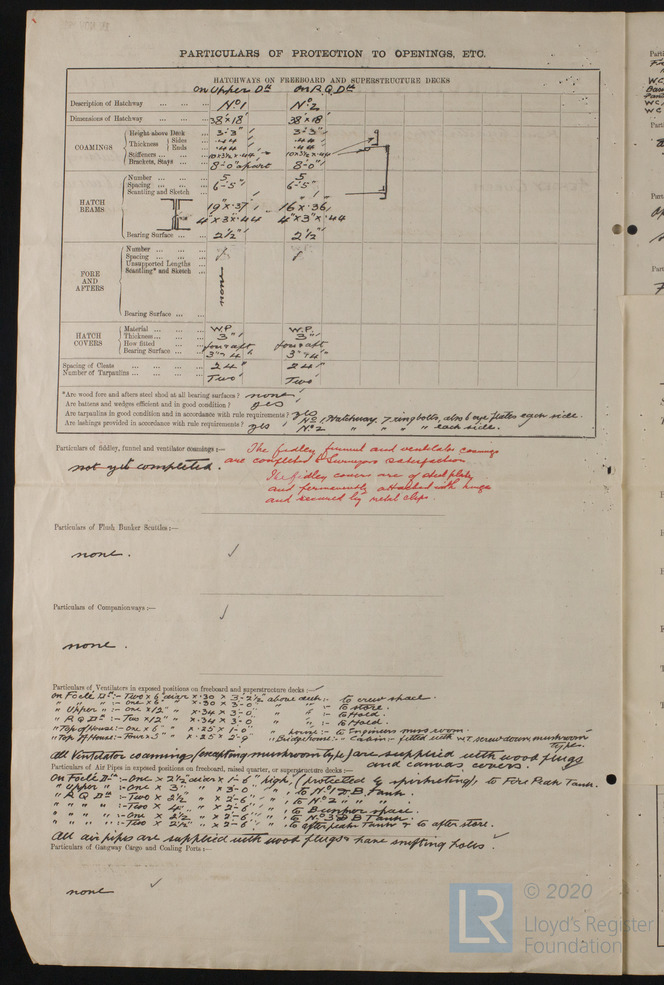 PARTICULARS OF PROTECTION TO OPENINGS, ETC.
HATCHWAYS ON FREEBOARD AND SUPERSTRUCTURE DECKS
on Upper Dk on R Q Dk
Description of Hatchway ... ... No 1 No 2
Dimensions of Hatchway ... ... 38' x 18' 38' x 18'
COAMINGS
Height above Deck ... 3'-3" 3'-3"
Thickness Sides .44 .44
Ends .44 .44
Stiffeners ... 10 x 3½ x .44 10 x 3½ x .44
Brackets, Stays ... 8'-0" apart 8'-0"
HATCH BEAMS
Number ... 5 5
Spacing ... 6'-5" 6'-5"
Scantling and Sketch
19" x .37 16" x .36
4" x 3" x .44 4" x 3" x .44
Bearing Surface ... 2½" 2½"
FORE AND AFTERS
Number ...
Spacing ...
Unsupported Lengths
Scantling* and Sketch
none
Bearing Surface ...
HATCH COVERS
Material ... W.P. W.P.
Thickness ... 3" 3"
How fitted ... fore & aft fore & aft
Bearing Surface ... 3" & 4" 3" & 4"
Spacing of Cleats ... 24" 24"
Number of Tarpaulins ... Two Two
*Are wood fore and afters steel shod at all bearing surfaces? none
Are battens and wedges efficient and in good condition? yes
Are tarpaulins in good condition and in accordance with rule requirements? yes
Are lashings provided in accordance with rule requirements? yes No 1 Hatchway. 7 ring bolts, also 6 eye plates each side.
No 2 " " " " each side.
Particulars of fiddley, funnel and ventilator coamings:—
not yet completed.
The fidley funnel and ventilator coamings
are completed to Surveyors satisfaction.
The fidley covers are of steel plate
and permanently attached with hinges
and secured by metal clips.
Particulars of Flush Bunker Scuttles:—
none.
Particulars of Companionways:—
none.
Particulars of Ventilators in exposed positions on freeboard and superstructure decks:—
On Focle Dk :- Two x 6" diar x .30 x 3'-2½" above deck :- to crew space.
" " " :- one x 6" " x .30 x 3'-0" " :- to store.
" Upper " :- one x 12" " x .34 x 3'-0" " :- to Hold.
" R Q Dk :- Two x 12" " x .34 x 3'-0" " :- to Hold.
" Top of House :- one x 6" " x .25 x 1'-0" " house :- to Engineers mess room.
" Top of House :- Four x 5" " x .25 x 2'-9" " Bridge house :- " Cabin :- fitted with W.T. screw down mushroom types.
All Ventilator coamings (excepting mushroom type) are supplied with wood plugs
and canvas covers.
Particulars of Air Pipes in exposed positions on freeboard, raised quarter, or superstructure decks:—
On Focle Dk :- One x 2½" diar x 1'-6" high, (protected by spirketing), to Fore Peak Tank.
" Upper " :- One x 3" " x 3'-0" " , to No 1 D B Tank.
" R Q Dk :- Two x 2½" " x 2'-6" " , to No 2 " " "
" " " :- Two x 4" " x 2'-6" " , to Bunker space.
" " " :- One x 2½" " x 2'-6" " , to No 3 D B Tank.
" " " :- Two x 2½" " x 2'-6" " , to after peak Tank & to after store.
All air pipes are supplied with wood plugs & have snifting holes.
Particulars of Gangway Cargo and Coaling Ports:—
none
© 2020
LR
Lloyd's Register
Foundation